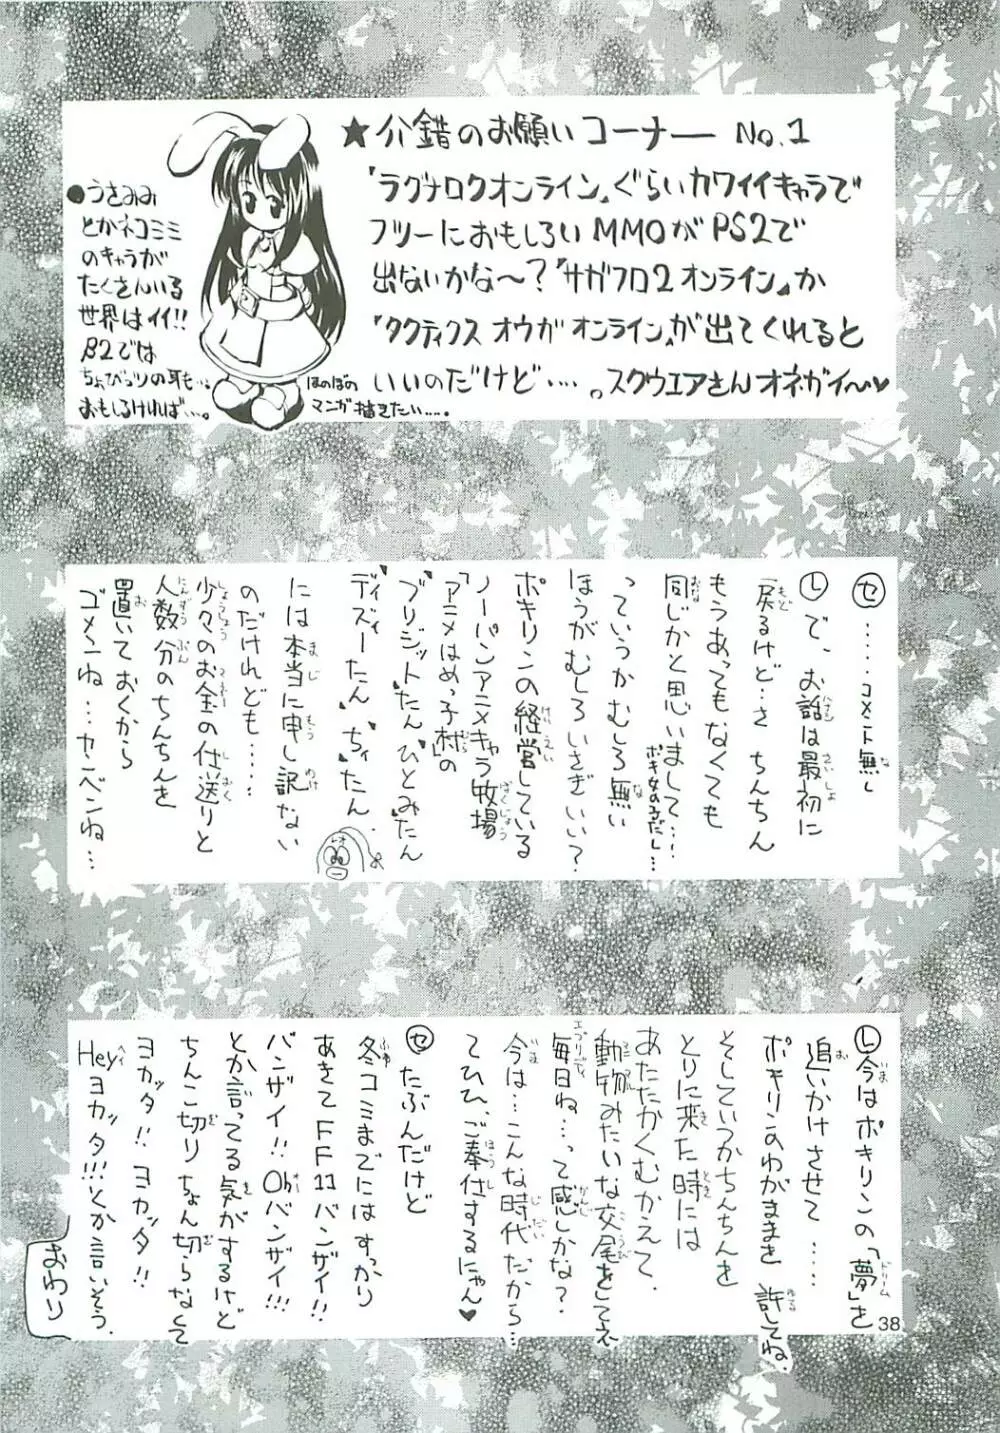 ★介錯のお願いコーナー No.1
『ラグナロクオンライン』ぐらいカワイイキャラで
フツーにおもしろいMMOがPS2で
出ないかな〜?『サガフロ2オンライン』か
『タクティクスオウガオンライン』が出てくれると
いいのだけど……。スクウエアさんオネガイ〜♥
●うさみみ
とかネコミミ
のキャラが
たくさんいる
世界はイイ!!
β2では
ちょびっツの耳も…
おもしろければ…。
ほのぼの
マンガ描きたい……。
セ ……コメント無し
レ で、お話は最初に
戻るけど…さ ちんちん
もうあってもなくても
同じかと思いまして…
ボキ女の子だし…
っていうかむしろ無い
ほうがむしろいさぎいい?
ポキリンの経営している
ノーパンアニメキャラ牧場
「アニメはめっ子村」の
ブリジットたん、ひとみたん
ディズィーたん、ちぃたん、
には本当に申し訳ない
のだけれども……
少々のお金の仕送りと
人数分のちんちんを
置いておくから
ゴメンね…カンベンね…
レ 今はポキリンの「夢」を
追いかけさせて……
ポキリンのわがままを 許してね。
そしていつかちんちんを
とりに来た時には
あたたかくむかえて、
動物みたいな交尾をしてえ
毎日ね…って感じかな?
今は…こんな時代だから…
てひひ、ご奉仕するにゃん♥
セ たぶんだけど
冬コミまでにはすっかり
あきてFF11バンザイ!!
バンザイ!!Ohバンザイ!!!
とか言ってる気がするけど
ちんこ切り ちょん切らなくて
ヨカッタ!!ヨカッタ!!
Heyヨカッタ!!!とか言いそう、
おわり
38